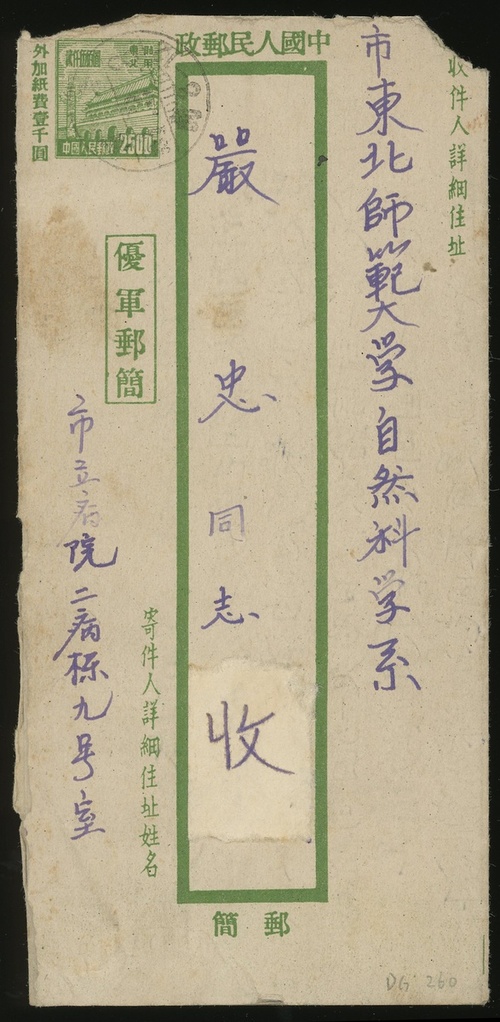 中國人民郵政
收件人詳細住址
市東北師範大学自然科学系
嚴忠同志
收
外加紙費壹千圓
中國人民郵政
2500
優軍郵簡
市立病院二病栋九号室
寄件人詳細住址姓名
郵簡
DG 260